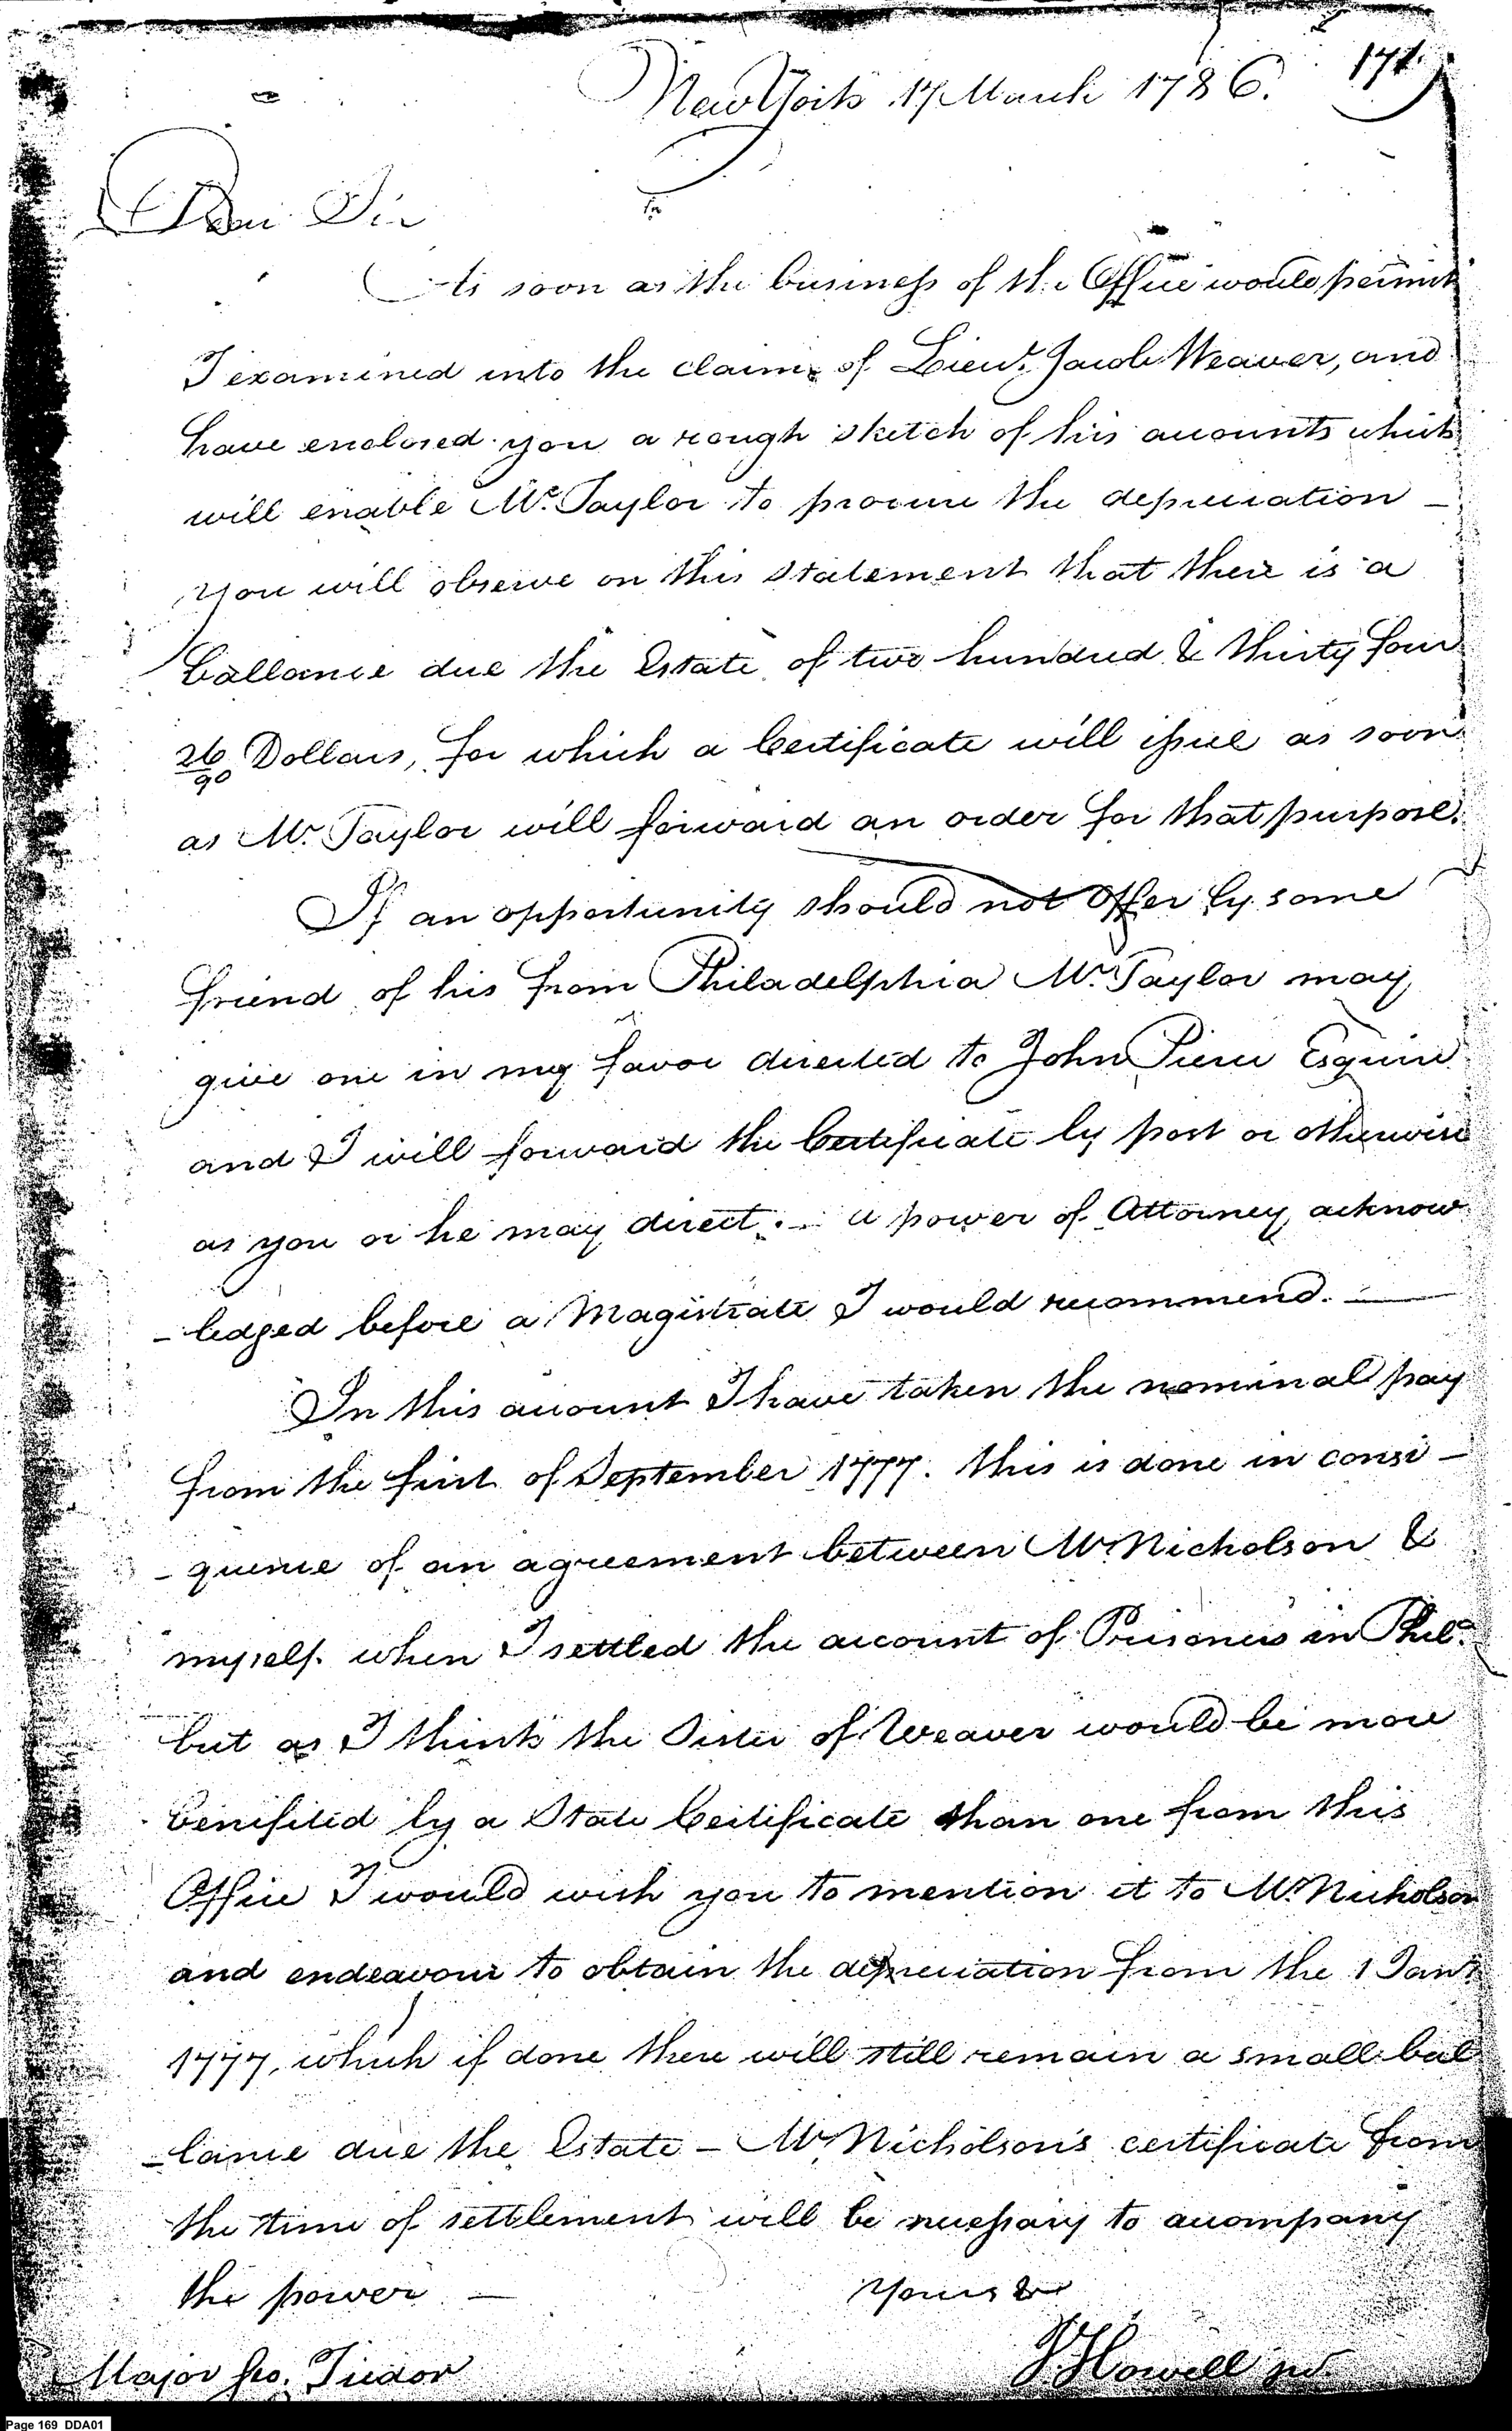 171
New York 17 March 1786.
Dear Sir
As soon as the business of the Office would permit
I examined into the claim of Lieut. Jacob Weaver, and
have enclosed you a rough sketch of his accounts which
will enable Mr. Taylor to procure the depreciation —
you will observe on this statement that there is a
ballance due the Estate of two hundred & thirty four
26/90 Dollars, for which a Certificate will issue as soon
as Mr. Taylor will forward an order for that purpose.
If an opportunity should not offer by some
friend of his from Philadelphia Mr. Taylor may
give one in my favor directed to John Pierce Esquire
and I will forward the Certificate by post or otherwise
as you or he may direct. — a power of Attorney acknow
-ledged before a Magistrate I would recommend. —
In this account I have taken the nominal pay
from the first of September 1777. this is done in conse-
-quence of an agreement between Mr Nicholson &
myself when I settled the account of Prisoners in Phila.
but as I think the Sister of Weaver would be more
benifited by a State Certificate than one from this
Office I would wish you to mention it to Mr Nicholson
and endeavour to obtain the depreciation from the 1 Jany
1777, which if done there will still remain a small bal
-lance due the Estate — Mr Nicholson's certificate from
the time of settlement will be necessary to accompany
the power —
Yours &c
J. Howell jur
Major Geo. Tudor
Page 169 DDA01